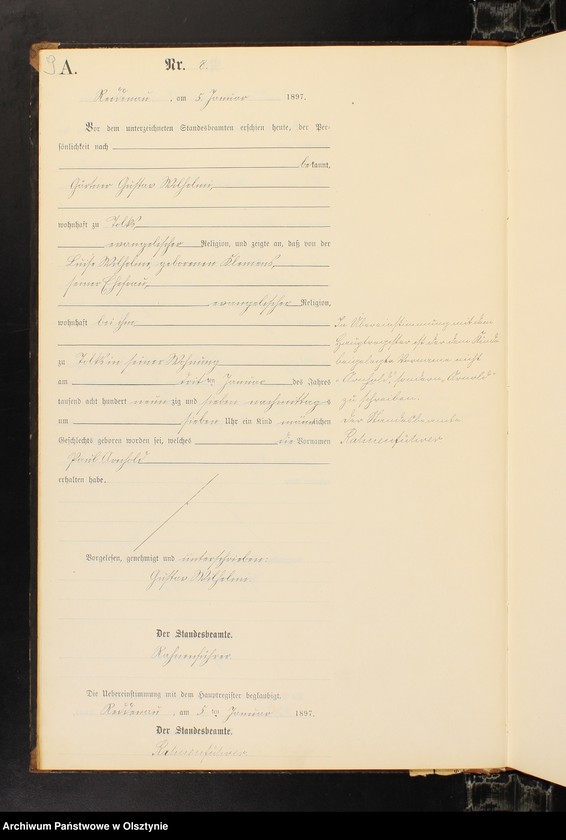 9
A.
Nr. 8.
Reddenau, am 5 Januar 1897.
Vor dem unterzeichneten Standesbeamten erschien heute, der Per-
sönlichkeit nach
bekannt,
Gärtner Gustav Wilhelmi,
wohnhaft zu Tolks,
evangelischer Religion, und zeigte an, daß von der
Luise Wilhelmi, geborenen Klemens,
seiner Ehefrau,
evangelischer Religion,
wohnhaft bei ihm
zu Tolks in seiner Wohnung
am dritten Januar des Jahres
tausend acht hundert neunzig und sieben nachmittags
um sieben Uhr ein Kind männlichen
Geschlechts geboren worden sei, welches die Vornamen
Paul Arnhold
erhalten habe.
Vorgelesen, genehmigt und unterschrieben:
Gustav Wilhelmi
Der Standesbeamte.
Die Uebereinstimmung mit dem Hauptregister beglaubigt.
Reddenau, am 5ten Januar 1897.
Der Standesbeamte.
In Übereinstimmung mit dem
Hauptregister ist der dem Kinde
beigelegte Vorname nicht
"Arnhold", sondern "Arnold"
zu schreiben.
Der Standesbeamte
Archiwum Państwowe w Olsztynie